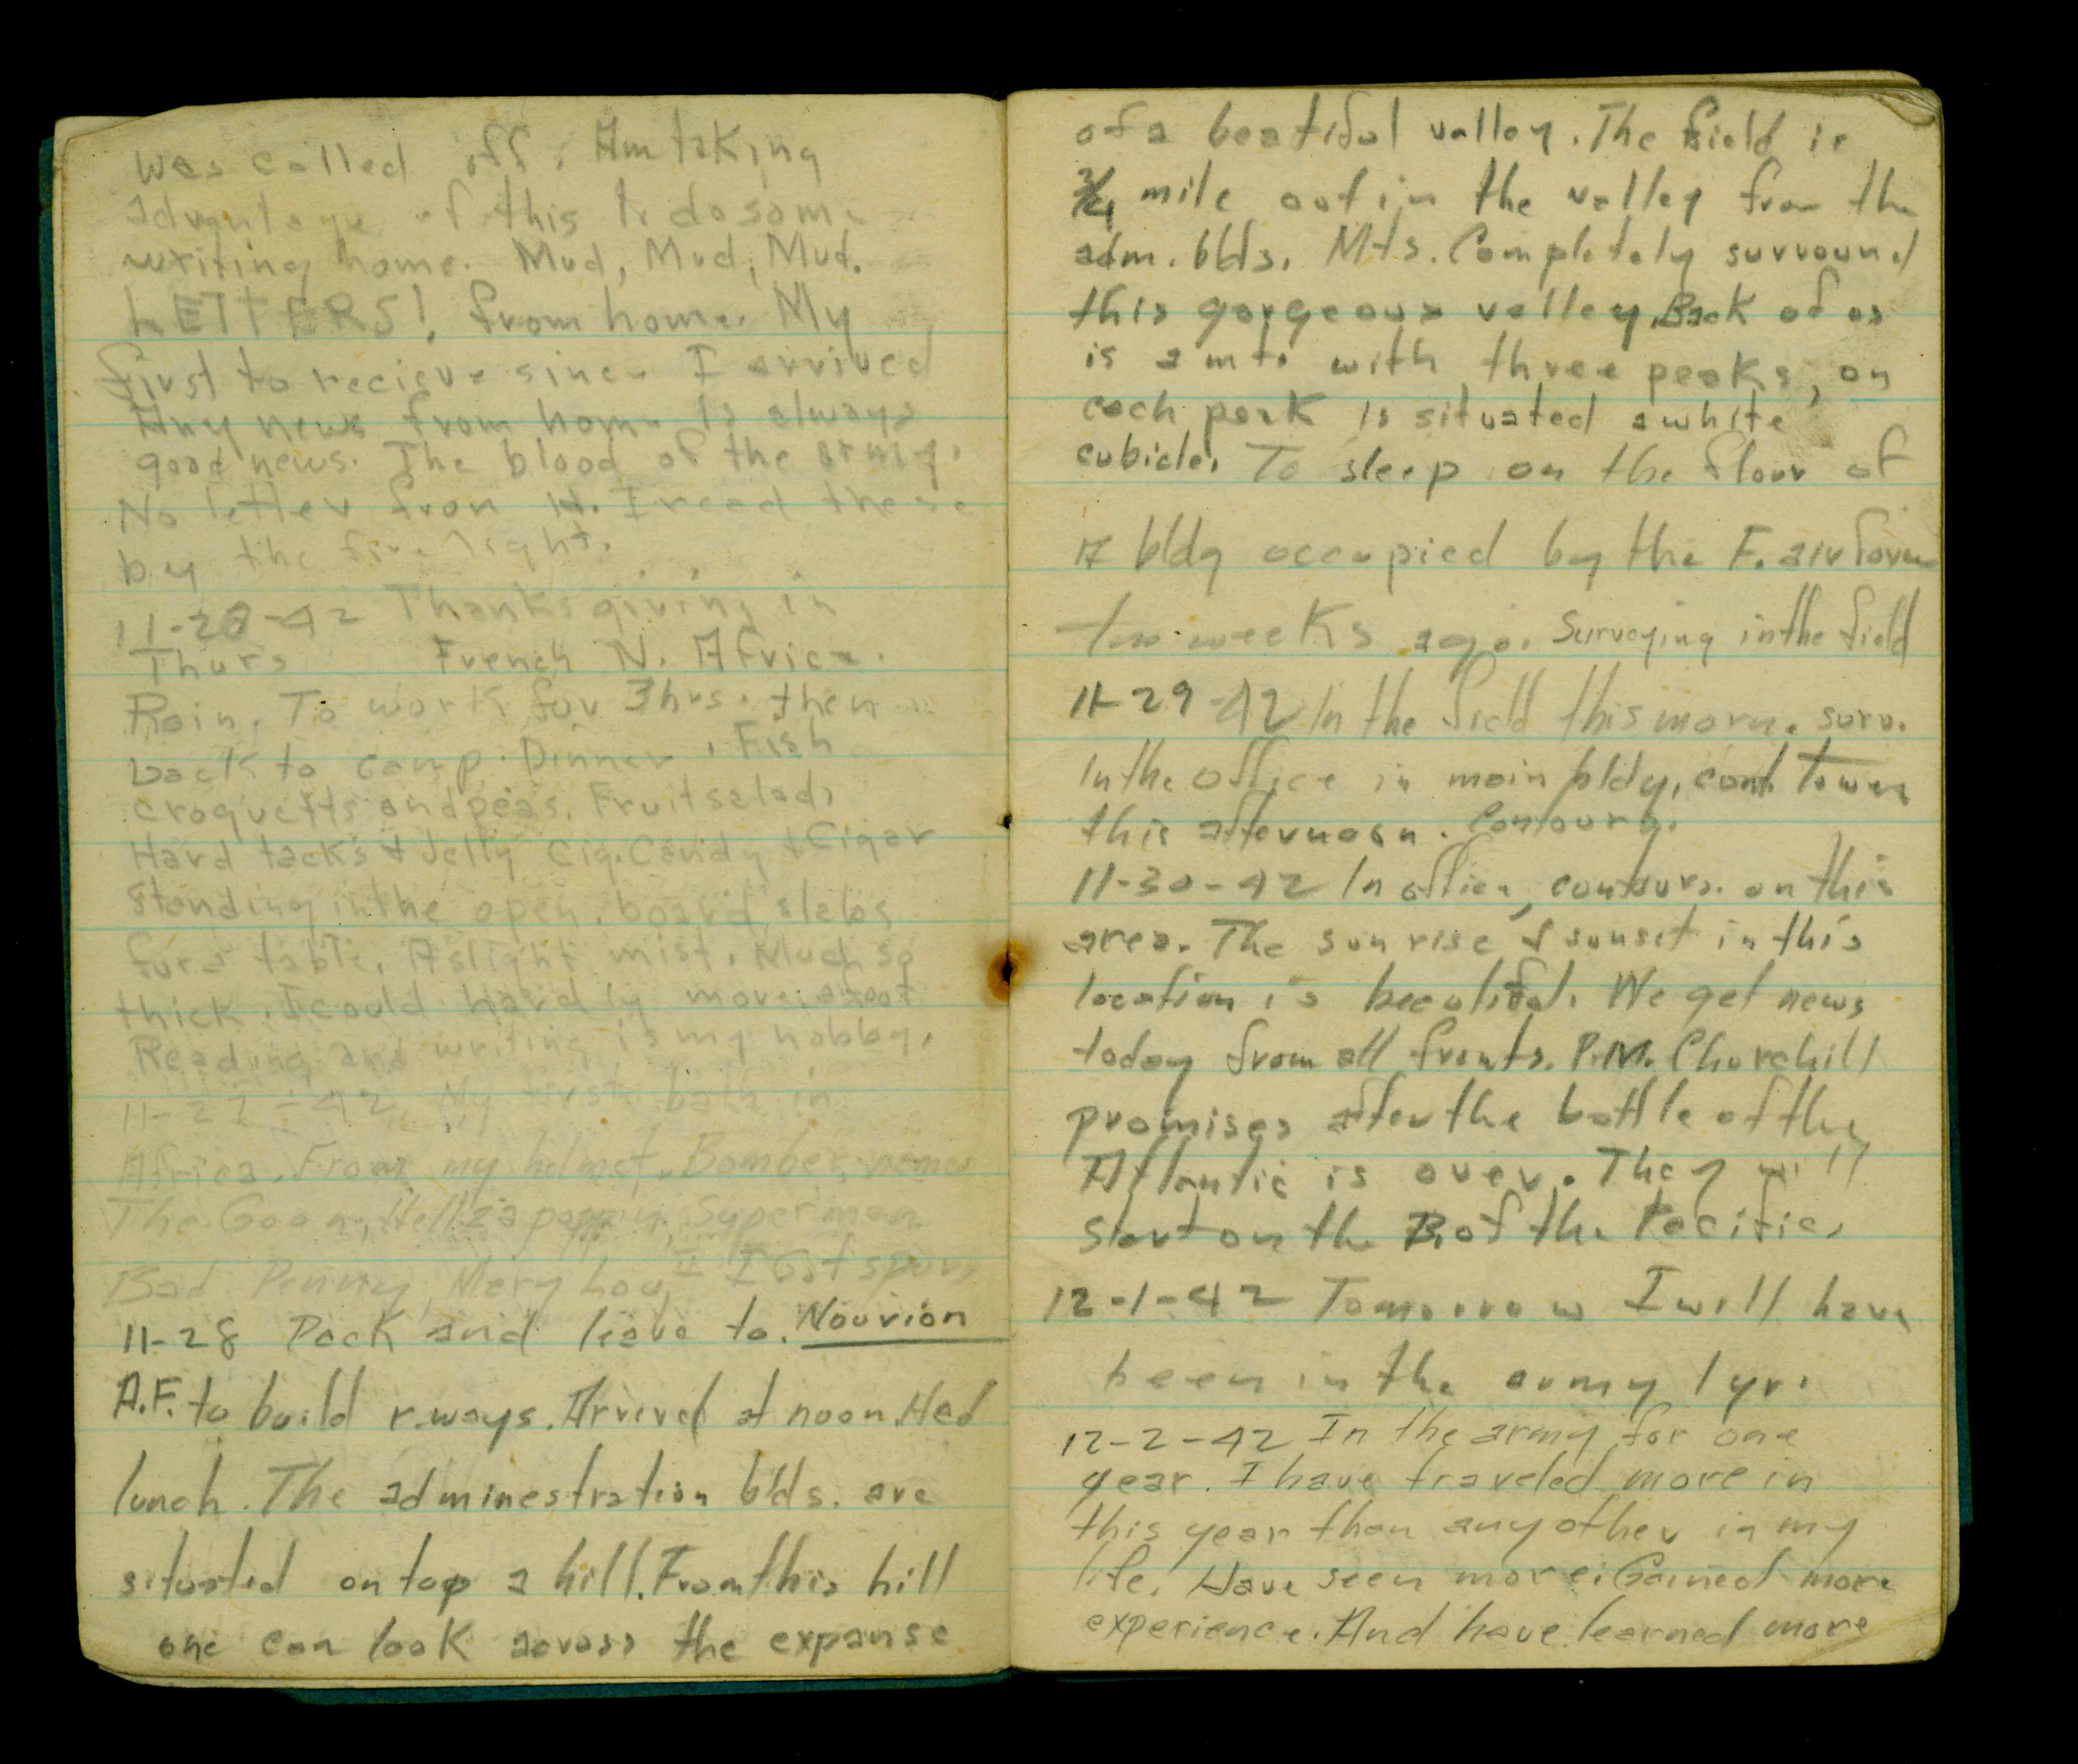 was called off. Am taking
advantage of this to do some
writing home. Mud, Mud, Mud.
LETTERS! from home. My
first to recieve since I arrived
Any news from home is always
good news. The blood of the army.
No letter from H. I read these
by the fire light.
11-26-42 Thanksgiving in
Thurs French N. Africa.
Rain. To work for 3 hrs. then
back to camp. Dinner, Fish
croquetts and peas. Fruit salad,
Hard tacks & Jelly Cig. Candy & Cigar
Standing in the open, board slabs
for a table. A slight mist. Mud so
thick. I could hardly move afoot
Reading and writing is my hobby.
11-27-42. My first bath in
Africa. From my helmet. Bomber names
The Goon, Hellzapoppin, Superman
Bad Penny, Mary Lou, II I Got spurs
11-28 Pack and leave to. Nouvion
A.F. to build r.ways. Arrived at noon. Had
lunch. The adminestration blds. are
situated on top a hill. From this hill
one can look across the expanse
of a beatiful valley. The field is
3/4 mile out in the valley from the
adm. blds. Mts. Completely surround
this gorgeous valley. Back of us
is a mt. with three peaks, on
each peak is situated a white
cubicle. To sleep on the floor of
A bldg occupied by the F. air force
two weeks ago. Surveying in the field
11-29-42 In the field this morn. surv.
In the office in main bldg, cont. tower
this afternoon. Contours.
11-30-42 In office, contours. on this
area. The sun rise & sunset in this
location is beautiful. We get news
today from all fronts. P.M. Churchill
promises after the battle of the
Atlantic is over. They will
start on the B. of the Pacific.
12-1-42 Tomorrow I will have
been in the army 1 yr.
12-2-42 In the army for one
year. I have traveled more in
this year than any other in my
life. Have seen more. Gained more
experience. And have learned more